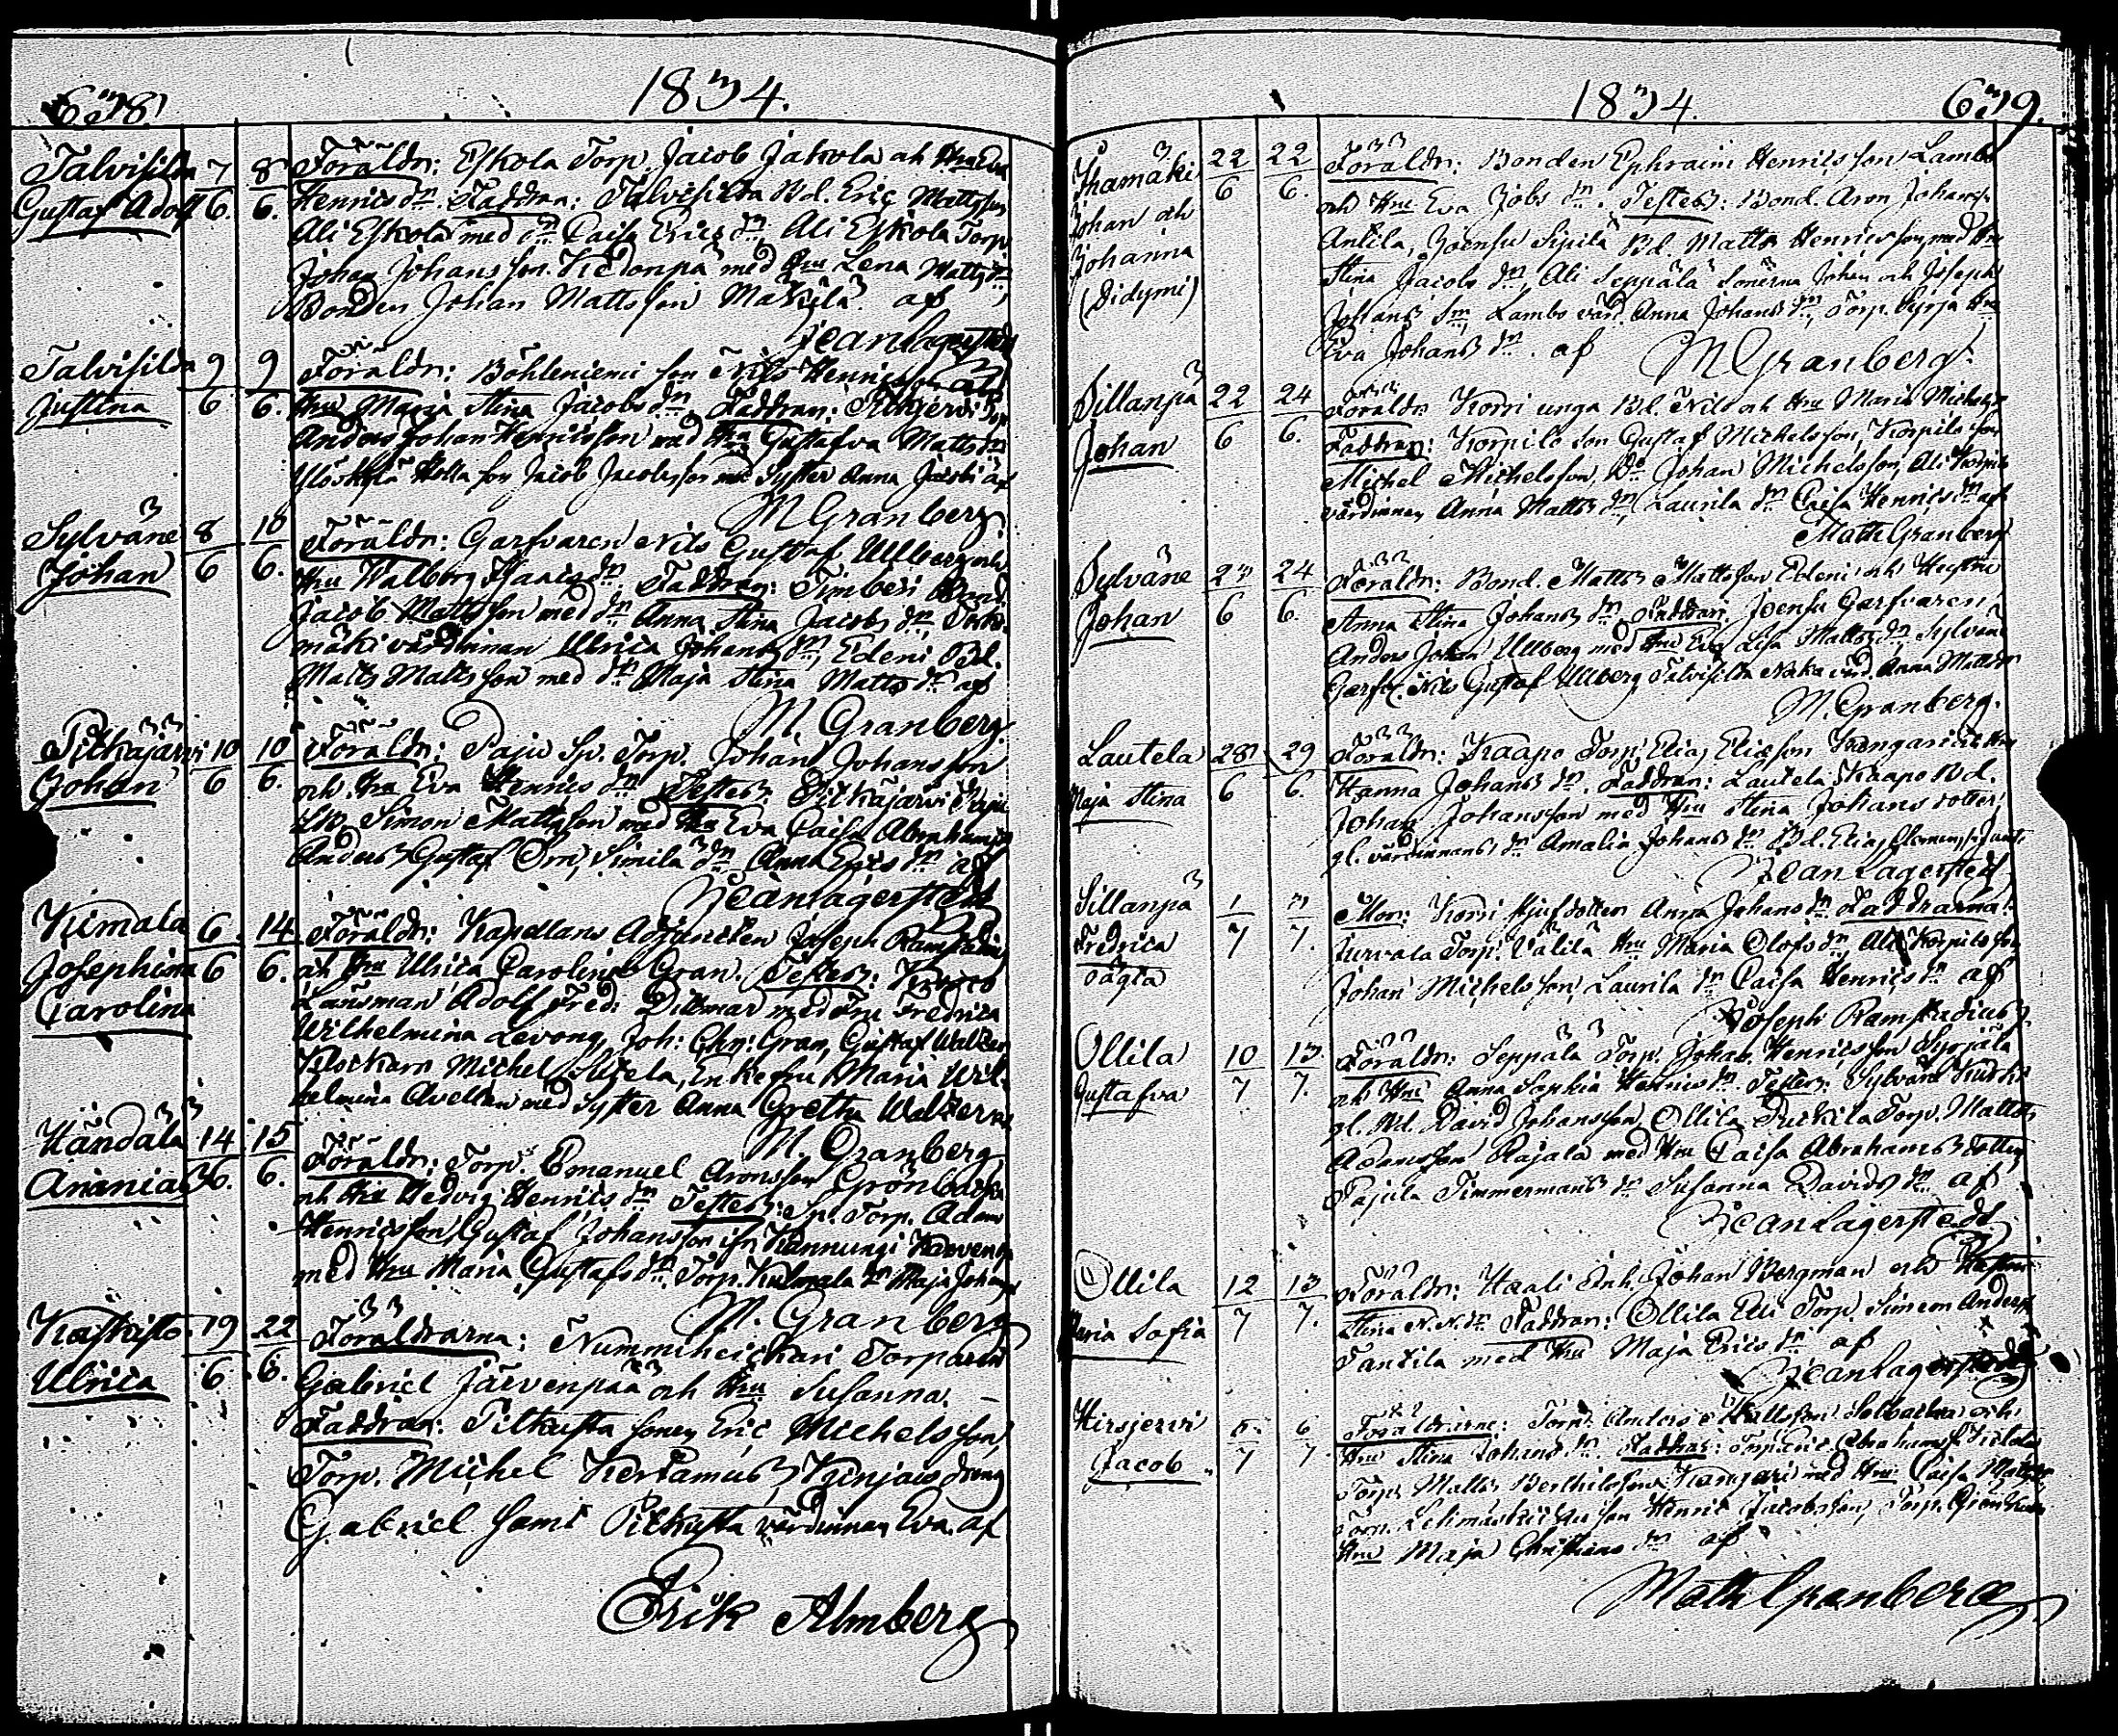 638
1834.
Talvisilda 7/6. 8/6. Föräldr: Eskola Torp. Jacob Jakola och Hru Eva
Gustaf Adolf Henricsdr. Faddran: Talvisilda Bd. Eric Mattsson
Ali Eskola med dr Caisa Erics dr, Ali Eskola Torp.
Johan Johansson Kedonpä med Hru Lena Matts dr
Bonden Johan Mattsson Mäkilä af
Jean Lagerstedt
Talvisilda 9/6 9/6. Föräldr: Böhleniemi son Nils Henricsson och
Justina Hru Maria Stina Jacobs dr. Faddran: Pitkjervi Torp.
Anders Johan Henricsson med Hru Gustafva Matts dr
son Jacob Jacobsson med Syster Anna
M Granberg
Sylväne 8/6 10/6. Föräldr: Garfvaren Nils Gustaf Ullberg och
Johan Hru Walborg dr. Faddran: Timberi Bond.
Jacob Mattsson med dr Anna Stina Jacobs dr,
mäki värdinnan Ulrica Johans dr, Edeni Bd.
Matts Mattsson med dr Maja Stina Matts dr af
M. Granberg.
Pitkäjärvi 10/6 10/6. Föräldr: Paju Sp. Torp. Johan Johansson
Johan och Hru Eva Henrics dr. Testes: Pitkäjärvi
Simon Mattsson med Hru Eva Caisa Abrahams dr
Anders Gustaf Örn, Simila dr Anna Erics dr af
Jean Lagerstedt
Kimala 6/6 14/6. Föräldr: Kapellans Adjuncten Joseph Ramstadius
Josephina och Fru Ulrica Carolina Gran. Testes:
Carolina Länsman Adolf Fred: Dittmar med Fru Fredrica
Wilhelmina Levong, Joh: Chr: Gran, Gustaf Walzer
Klockarn Michel, Enkefru Maria Wil-
helmina Avellan med Syster Anna Gretha Walzer af
M. Granberg
Händälä 14/6. 15/6. Föräldr: Torp. Emanuel Aronsson Grönbacka
Ananias och Hru Hedvig Henrics dr Testes: Sp. Torp. Adam
Henricsson, Gustaf Johansson ifr Kannungi
med Hru Maria Gustafs dr, Torp. Kulmala dr Maja Johans
M. Granberg
Kaskisto 19/6 22/6. Föräldrarna: Nummiheickari Torparen
Ulrica Gabriel Järvenpää och Hru Susanna. –
Faddran: Pitkusta sonen Eric Michelsson,
Torp. Michel Kertamus, dreng
Gabriel samt Pitkusta värdinnan Eva. af
Erik Almberg
1834.
639.
Ihamäki 22/6 22/6. Föräldr: Bonden Ephraim Henricsson Lambo
Johan och och Hru Eva Jobs dr. Testes: Bond. Aron Johanss.
Johanna Antila, Joensu Sipilä Bd. Matts Henricsson med Hru
(Didymi) Stina Jacobs dr, Ali Seppälä sönerna Johan och Joseph
Johans sm, Lambo värd. Anna Johans dr, Torp. Syrjä Hru
Eva Johans dr. af M Granberg.
Sillanpä 22/6 24/6. Föräldr Korri unga Bd. Nils och Hru Maria Michels dr
Johan Faddran: Korpilo son Gustaf Michelsson, Korpilo son
Michel Michelsson, Do Johan Michelsson, Ali Korpilo
värdinnan Anna Matts dr, Laurila dr Caisa Henrics dr af
Math Granberg
Sylväne 23/6 24/6. Föräldr: Bond. Matts Mattsson Edeni och Hustru
Johan Anna Stina Johans dr Faddran: Joensu Garfvaren
Anders Johan Ullberg med Hru Eva Lisa Matts dr, Sylväne
Garfv. Nils Gustaf Ullberg Talvisilda Naka värd. Anna Matts dr
M. Granberg.
Lautela 28/6 29/6. Föräldr: Kaapo Torp. Elias Eliæson Kangari och Hru
Maja Stina Hanna Johans dr. Faddran: Lautela Kaapo Bd.
Johan Johansson med Hru Stina Johans dotter
gl. värdinnans dr Amalia Johans dr Bd. Elias Clemensson
Jean Lagerstedt
Sillanpä 1/7 3/7. Mor: Korri Hjufdotter Anna Johans dr Faddrarna:
Fredrica Turvala Torp. Välilä Hru Maria Olofs dr, Ali Korpilo son
oägta Johan Michelsson, Laurila dr Caisa Henrics dr af
Joseph Ramstadius
Ollila 10/7 13/7. Föräldr: Seppälä Torp. Johan Henricsson Syrjälä
Gustafva och Hru Anna Sophia Henrics dr. Testes: Sylväne Kurki
gl. Bd. David Johansson, Ollila Torp. Matts
Adamsson Rajala med Hru Caisa Abrahams dotter
Pajula Timmermans dr Susanna Davids dr af
Jean Lagerstedt.
Ollila 12/7 13/7. Föräldr: Haali Enk. Johan Bergman och Hustru
Maria Sofia Stina N.N. dr Faddran: Ollila Torp. Simeon Anderss.
Tantila med Hru Maja Erics dr af
Jean Lagerstedt
Hirsjervi 5/7 6/7 Föräldrarne: Torp. Anders Mattsson och
Jacob Hru Stina Johans dr. Faddrar: Torp. Eric Abrahamss.
Torp. Matts Berthilsson Kangari med Hru Caisa Matts dr
Torp. son Henric Jacobsson, Torp.
Hru Maja Christians dr af
Math Granberg